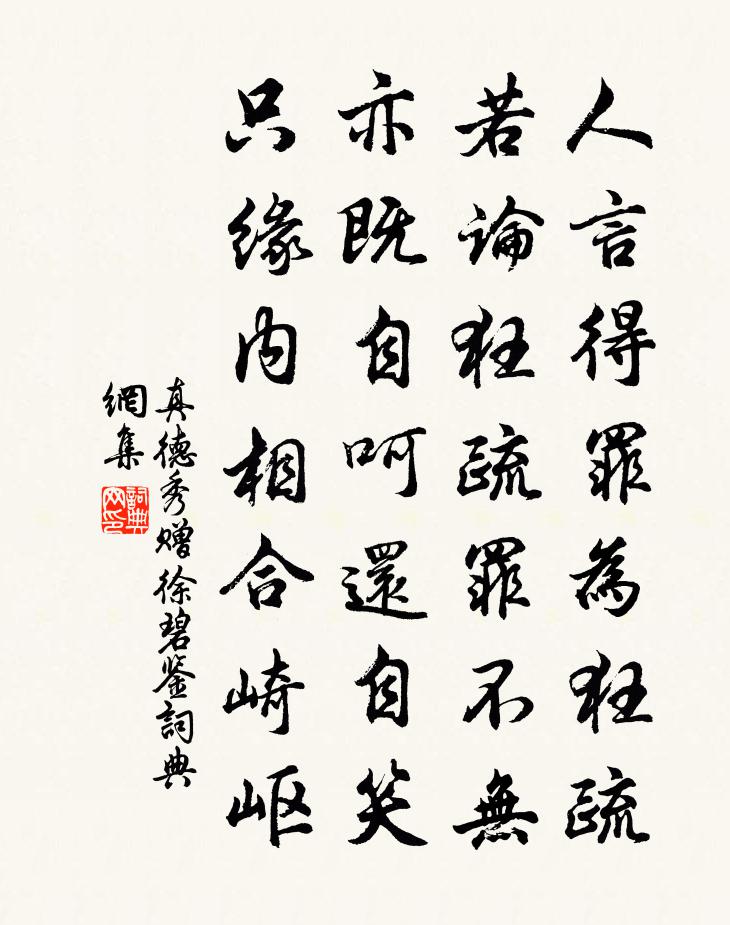 人言得罪為狂疏
若論狂疏罪不無
亦既自呵還自笑
只緣内相合崎岖
真德秀赠徐碧鉴詞典
網集
詞典网印